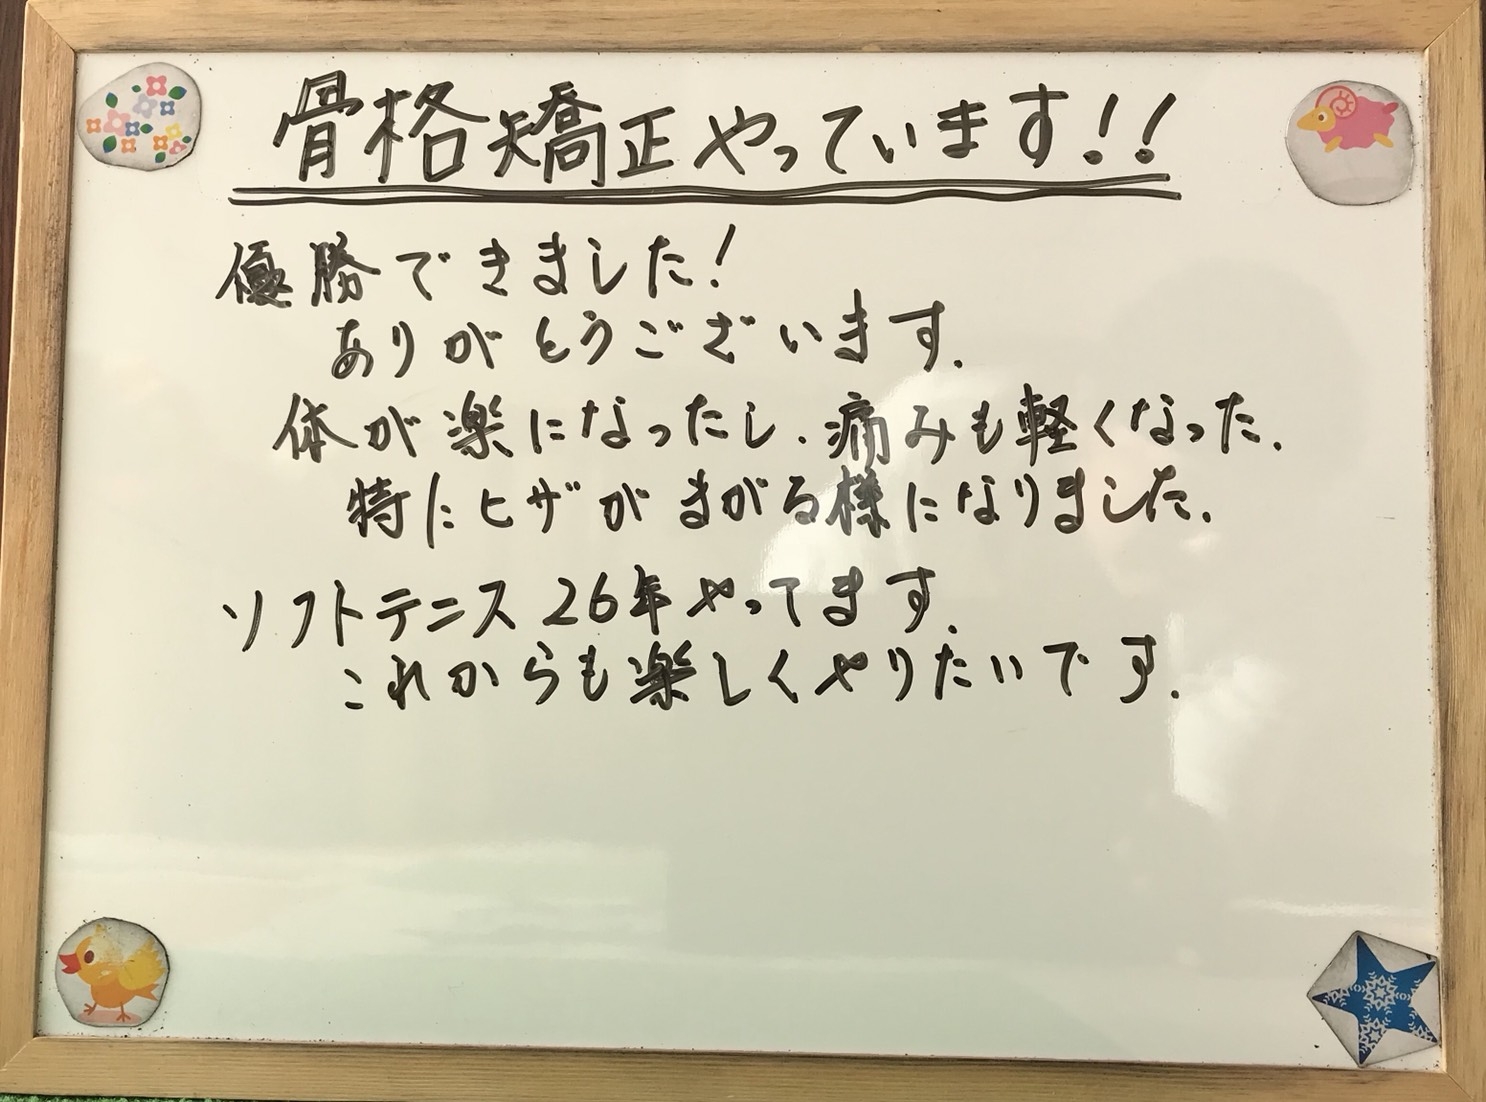 骨格矯正やっています!!
優勝できました!
ありがとうございます.
体が楽になったし.痛みも軽くなった.
特にヒザがまがる様になりました.
ソフトテニス26年やってます.
これからも楽しくやりたいです.